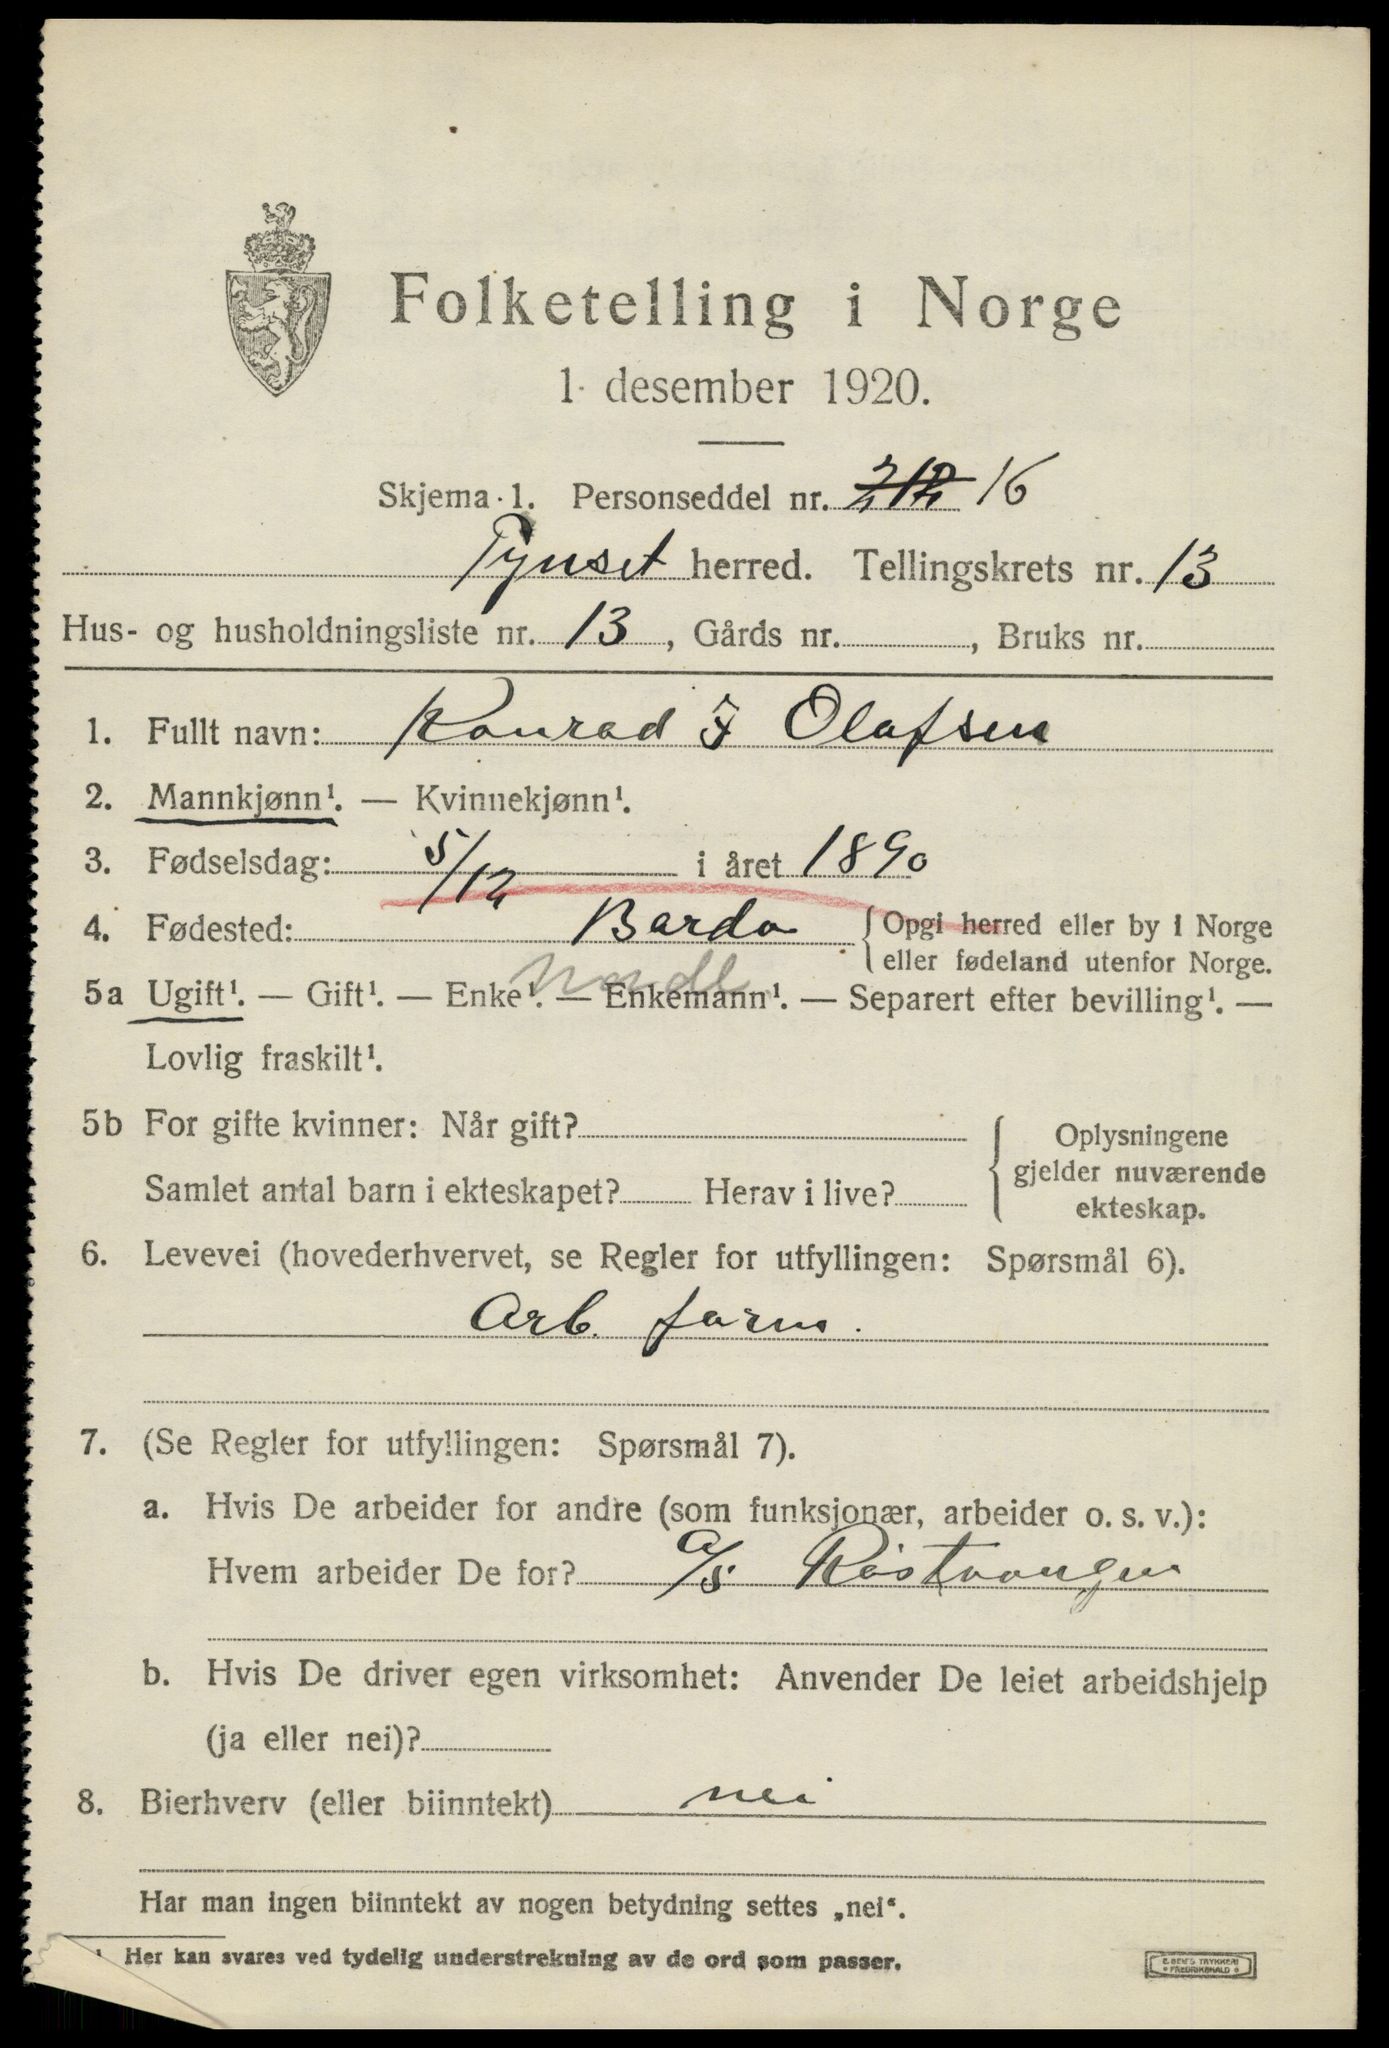 Folketelling i Norge
1. desember 1920.
Skjema 1. Personseddel nr. 16
Tynset herred. Tellingskrets nr. 13
Hus- og husholdningsliste nr. 13, Gårds nr. , Bruks nr.
1. Fullt navn: Konrad J Olafsen
2. Mannkjønn¹. — Kvinnekjønn¹.
3. Fødselsdag: 5/12 i året 1890
4. Fødested: Bardo {Opgi herred eller by i Norge
eller fødeland utenfor Norge.
Nordl.
5a Ugift¹. — Gift¹. — Enke¹. — Enkemann¹. — Separert efter bevilling¹. —
Lovlig fraskilt¹.
5b For gifte kvinner: Når gift? { Oplysningene
gjelder nuværende
Samlet antal barn i ekteskapet? Herav i live?
ekteskap.
6. Levevei (hovederhvervet, se Regler for utfyllingen: Spørsmål 6).
Arb. form.
7. (Se Regler for utfyllingen: Spørsmål 7).
a. Hvis De arbeider for andre (som funksjonær, arbeider o. s. v.):
Hvem arbeider De for? A/S Röstvangen
b. Hvis De driver egen virksomhet: Anvender De leiet arbeidshjelp
(ja eller nei)?
8. Bierhverv (eller biinntekt) nei
Har man ingen biinntekt av nogen betydning settes „nei“.
¹ Her kan svares ved tydelig understrekning av de ord som passer.
E. SEM'S TRYKKERI
FREDRIKSHALD